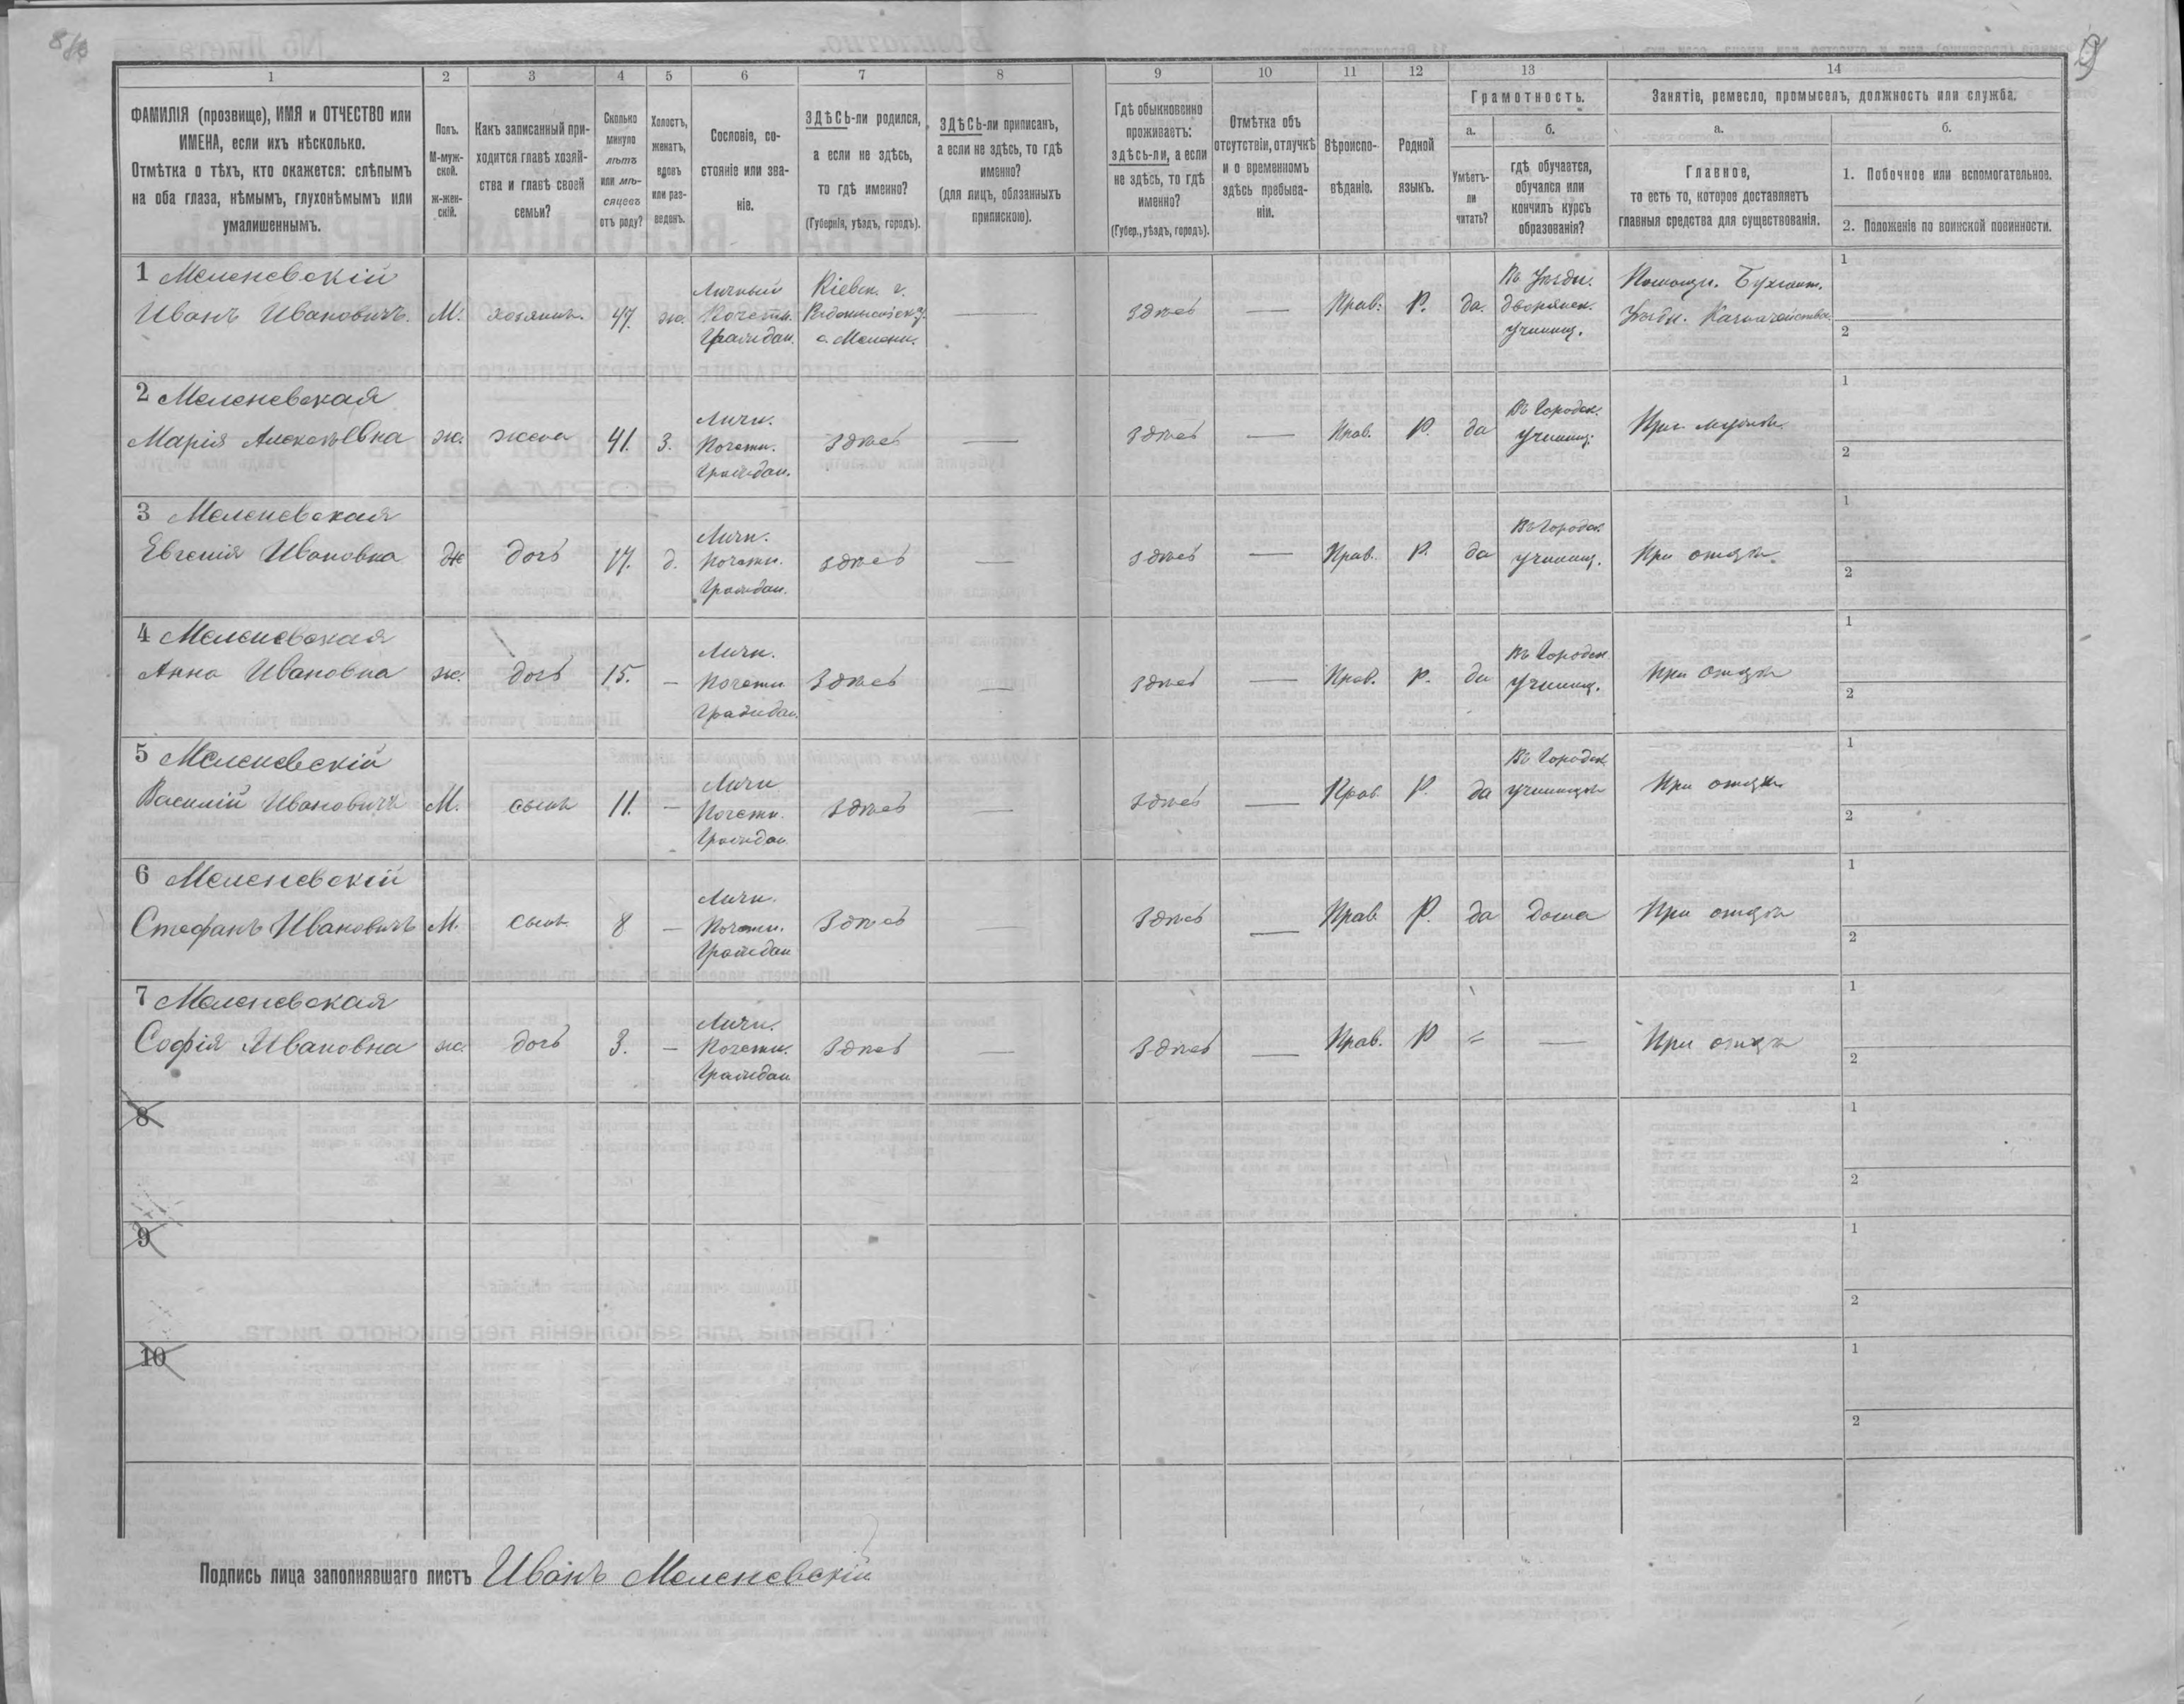 9
1 2 3 4 5 6 7 8 9 10 11 12 13 14
ФАМИЛІЯ (прозвище), ИМЯ и ОТЧЕСТВО или
ИМЕНА, если ихъ нѣсколько.
Отмѣтка о тѣхъ, кто окажется: слѣпымъ
на оба глаза, нѣмымъ, глухонѣмымъ или
умалишеннымъ.
Полъ.
М-муж-
ской.
ж-жен-
скій.
Какъ записанный при-
ходится главѣ хозяй-
ства и главѣ своей
семьи?
Сколько
минуло
лѣтъ
или мѣ-
сяцевъ
отъ роду?
Холостъ,
женатъ,
вдовъ
или раз-
веденъ.
Сословіе, со-
стояніе или зва-
ніе.
ЗДѢСЬ-ли родился,
а если не здѣсь,
то гдѣ именно?
(Губернія, уѣздъ, городъ).
ЗДѢСЬ-ли приписанъ,
а если не здѣсь, то гдѣ
именно?
(для лицъ, обязанныхъ
припискою).
Гдѣ обыкновенно
проживаетъ:
здѣсь-ли, а если
не здѣсь, то гдѣ
именно?
(Губер., уѣздъ, городъ).
Отмѣтка объ
отсутствіи, отлучкѣ
и о временномъ
здѣсь пребыва-
ніи.
Вѣроиспо-
вѣданіе.
Родной
языкъ.
Грамотность.
а.
Умѣетъ-
ли
читать?
б.
гдѣ обучается,
обучался или
кончилъ курсъ
образованія?
Занятіе, ремесло, промыселъ, должность или служба.
а.
Главное,
то есть то, которое доставляетъ
главныя средства для существованія.
б.
1. Побочное или вспомогательное.
2. Положеніе по воинской повинности.
1 Меленевскій
Иванъ Ивановичъ.
М.
хозяинъ.
47.
ж.
Личный
Почетн.
Граждан.
Кіевск. г.
с. Мелени.
—
здѣсь
—
Прав.
Р.
да.
Въ Уѣздн.
дворянск.
училищ.
Помощн. Бухгалт.
Уѣздн. Казначейства.
1
2
2 Меленевская
Марія Алексѣевна
ж.
жена
41.
З.
Личн.
Почетн.
Граждан.
Здѣсь
—
Здѣсь
—
Прав.
Р.
да
Въ Городск.
училищ.
При мужѣ
1
2
3 Меленевская
Евгенія Ивановна
ж
дочь
17.
д.
Личн.
Почетн.
Граждан.
здѣсь
—
здѣсь
—
Прав.
Р.
да
Въ Городск.
училищ.
При отцѣ
1
2
4 Меленевская
Анна Ивановна
ж.
дочь
15.
—
Личн.
Почетн
Граждан.
Здѣсь
—
здѣсь
—
Прав.
Р.
да
Въ Городск
училищ.
При отцѣ
1
2
5 Меленевскій
Василій Ивановичъ
М.
сынъ
11.
—
Личн
Почетн.
Граждан
Здѣсь
—
здѣсь
—
Прав.
Р.
да
Въ Городск
училищѣ
При отцѣ
1
2
6 Меленевскій
Стефанъ Ивановичъ
М.
сынъ
8
—
Личн.
Почетн.
Граждан
Здѣсь
—
Здѣсь
—
Прав.
Р.
да
Дома
При отцѣ
1
2
7 Меленевская
Софія Ивановна
ж.
дочь
3.
—
Личн.
Почетн.
Граждан
Здѣсь
—
Здѣсь
—
Прав.
Р
—
При отцѣ
1
2
8
1
2
9
1
2
10
1
2
Подпись лица заполнявшаго листъ Иванъ Меленевскій